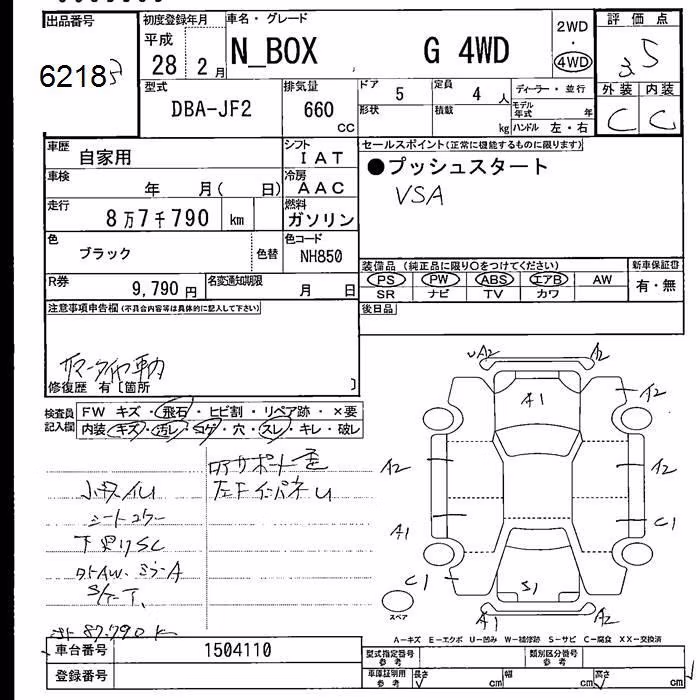 出品番号 初度登録年月 車名・グレード 2WD 評価点
6218 平成 28 2月 N_BOX G 4WD ・ 4WD 3.5
型式 排気量 ドア 5 定員 4人 ディーラー・並行 外装 内装
DBA-JF2 660 cc 形状 積載 kg モデル年式 年 ハンドル 左・右 C C
車歴 自家用 シフト IAT セールスポイント(正常に機能するものに限ります)
車検 年 月( 日) 冷房 AAC ●プッシュスタート
走行 8万7千790 km 燃料 ガソリン VSA
色 ブラック 色替 色コード NH850
R券 9,790円 名変通知期限 月 日
装備品 (純正品に限り○をつけてください) 新車保証書
PS PW ABS エアB AW 有・無
SR ナビ TV カワ
注意事項申告欄(不具合内容等は具体的に記入して下さい) 後日品
サマータイヤ車内
修復歴 有〔箇所 〕
検査員記入欄 FW キズ・飛石・ヒビ割・リペア跡・×要
内装・キズ・汚レ・コゲ・穴・スレ・キレ・破レ
小キズ凹U
シートコゲ
下廻りSC
S/T.
87,790K
UA2 A2
A1
A2
A2 A2
A1 C1
C1 S1
スペア A1 A2
A-キズ E-エクボ U-凹み W-補修跡 S-サビ C-腐食 XX-交換済
車台番号 1504110 型式指定番号 参考 類別区分番号 参考
登録番号 車庫証明用 参考 長さ cm 幅 cm 高さ cm